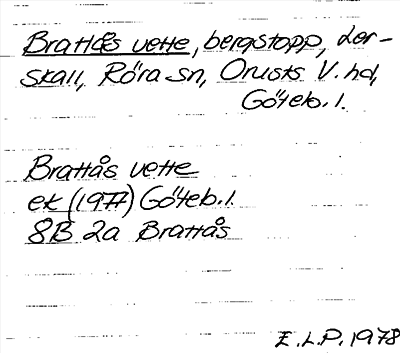 Brattås vette, bergstopp, Ler-
skall, Röra sn, Orusts V. hd,
Göteb. l.
Brattås vette
ek (1977) Göteb. l.
8B 2a Brattås
E.L.P. 1978